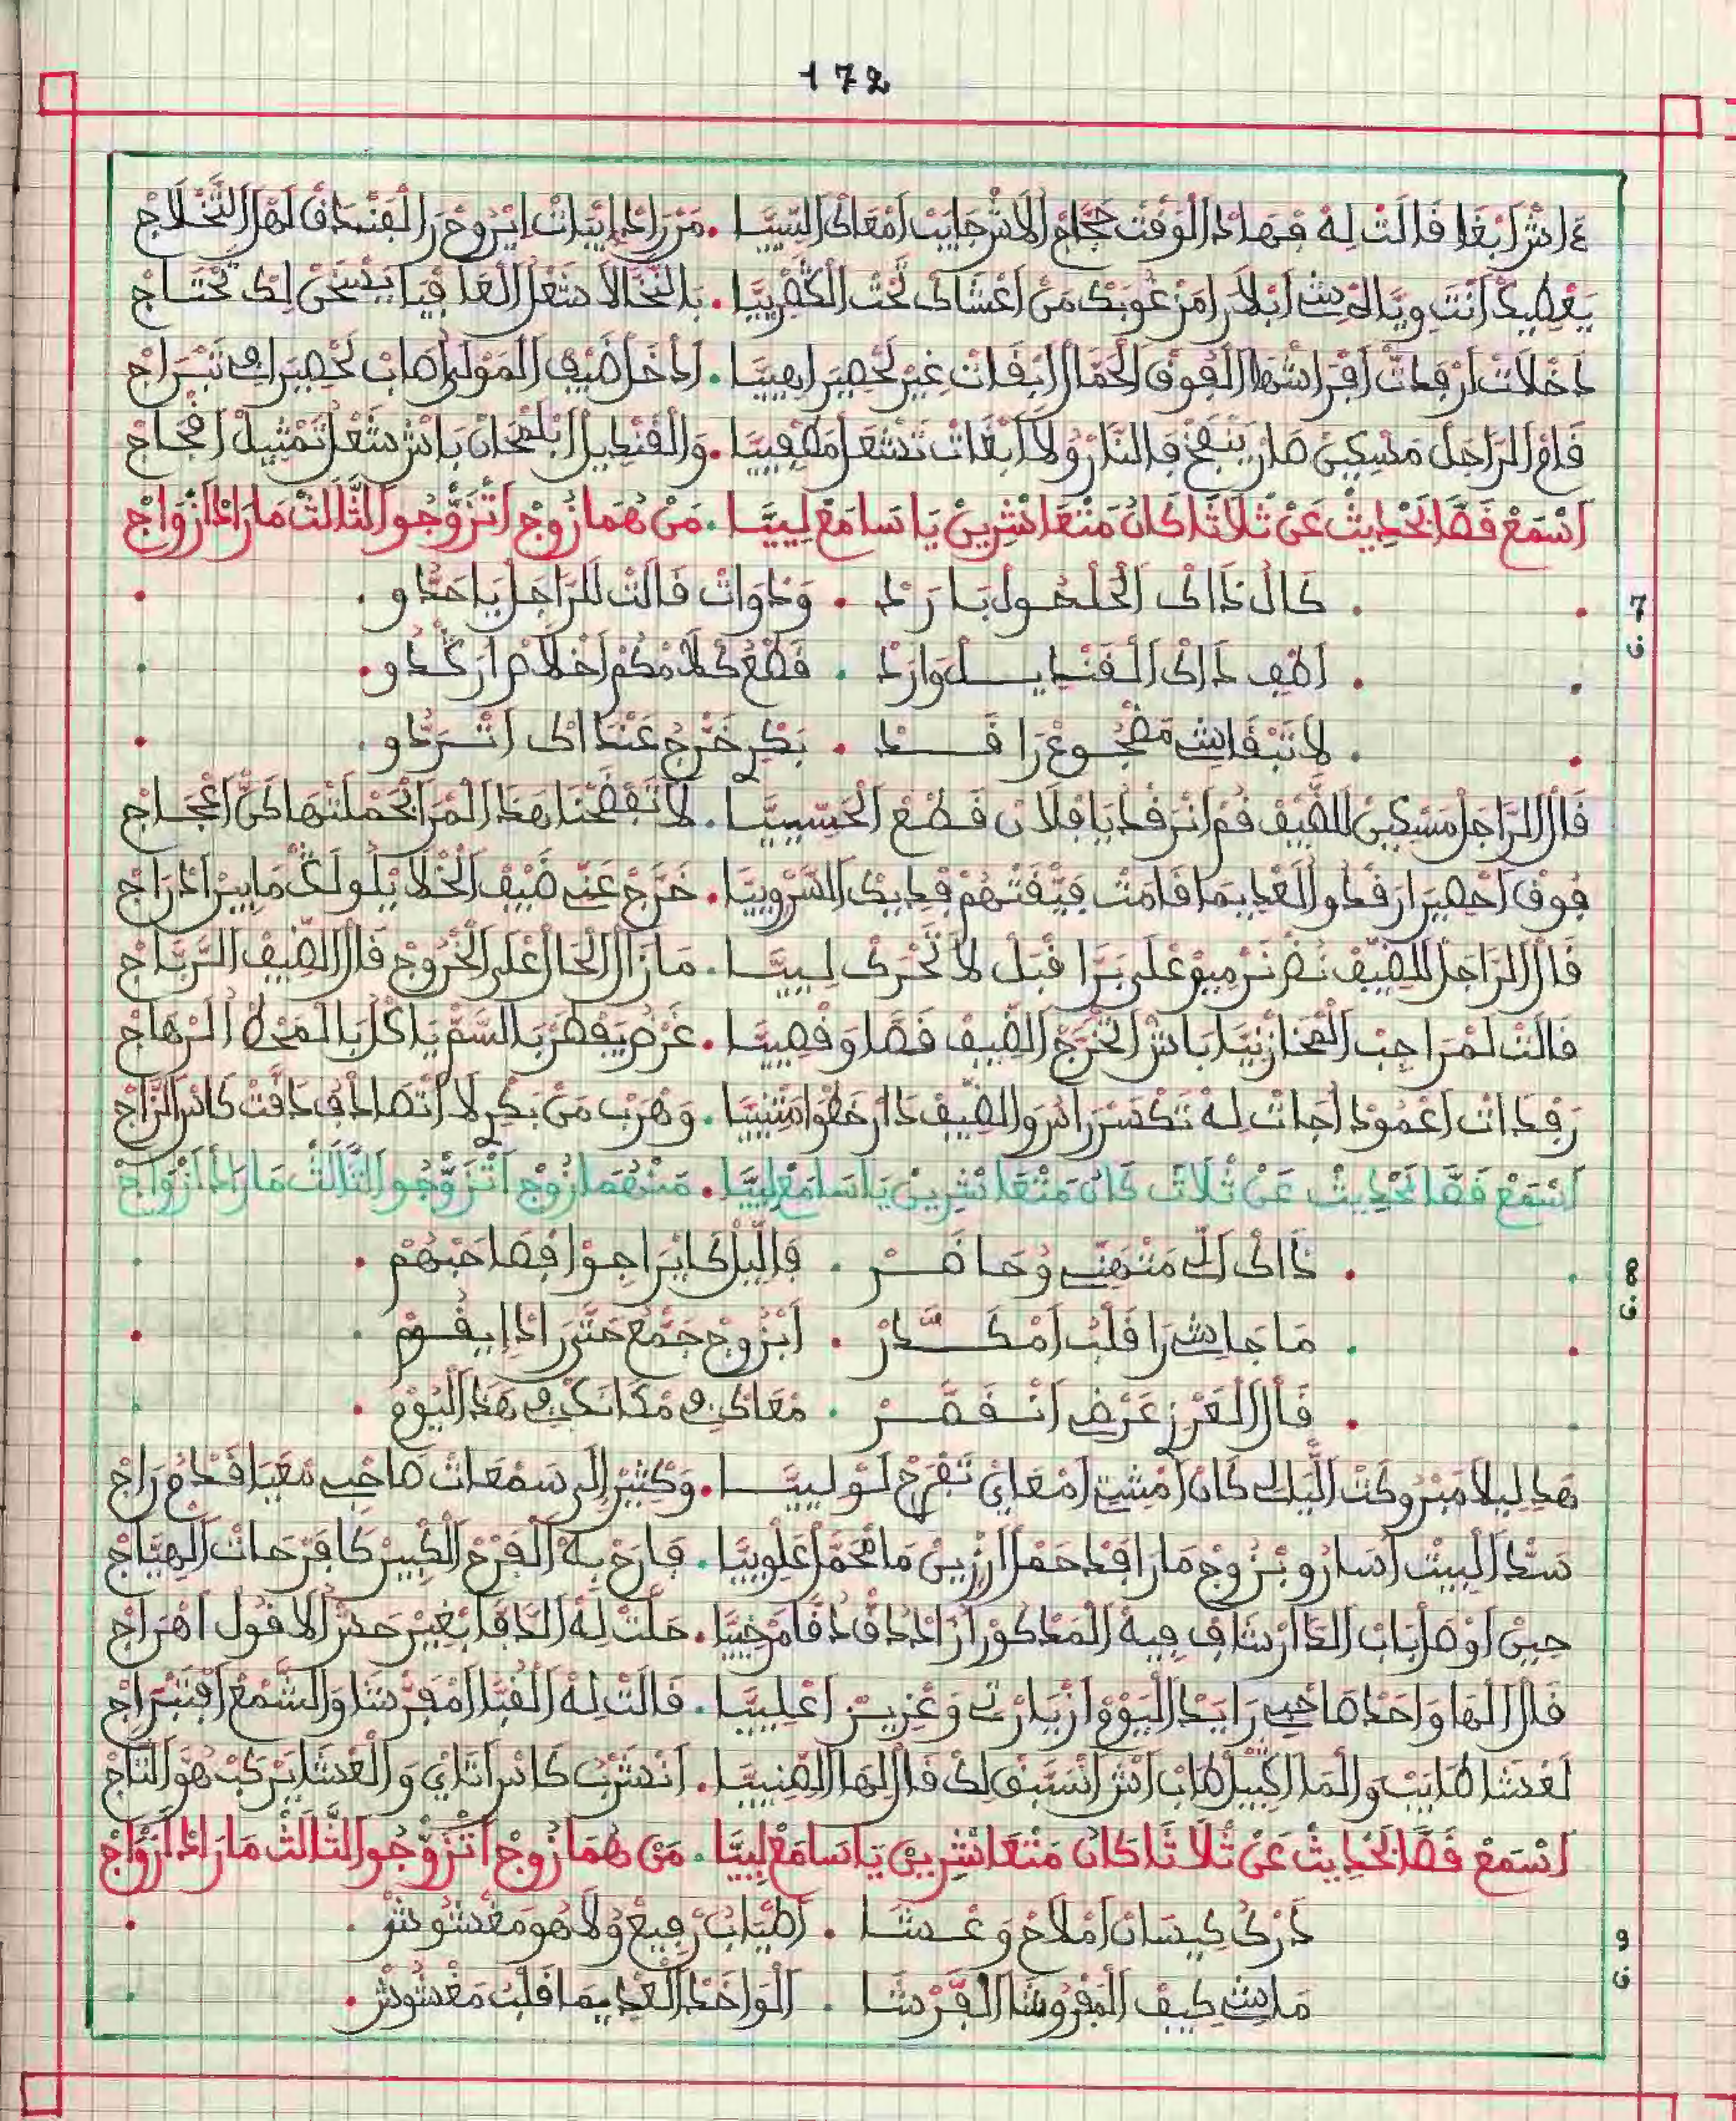 172
اش ابغا قالت له فهاد الوقت حجام الاش جايب امعاك السيبيا . من راد ايبات ايروح را الفنداق لهل التخلاج
يعطيك انت ابلا را مرغوبك من اعشاك تحت الكضربيا . بالنخالا شعل العافيا يسخن لك تحتاج
دخلات ارقدات افراشها الفوق الحمال ابقات غير لحصير اهبيا . ادخل ضيف المولى صاب لحصير تبراج
قام الراجل مسكين صار ينفخ فالنار ولا ابغات تشعل مطفييا . والقنديل باش شعل تمثيل افجاج
اسمع قصا لحديث عن ثلاثا كان متعاشرين يا سامع ليا . من هما زوج اتزوجو الثالث ما راد ازواج
7
ق
. كال ذاك الحلحول بارد . ودوات قالت للراجل يا حدو .
. اطف داك القنديل وارد . قطع كلامكم اخلاص اركدو .
. لا تبقايش مفجوع راقد . بكر خرج عندك اتردو .
قال الراجل مسكين للضيف قم انرقد يا فلان قطع الحسييا . لا تفضحنا هذ المرا لحملتها كن اعجاج
فوق احصير ارقدو الغديما قامت فيقتهم قديك السروبيا . خرج عني ضيف الخلا يلولك ما بين ادراج
قال الراجل للضيف نض نرميو على برا قبل لا تحرك لييا . مازال الحال على الخروج قال الضيف الرباج
قالت لمرا جب المخازنيا باش الخرج الضيف قصا وقصيا . غرض يفطر بالسم ياكل بالمخطا الرهاج
رفدات اعمود اجات له تكسر راسو والضيف دار خطوا متنيا . وهرب من بكر لا اتصادف دقت كاس الزاج
اسمع قصا لحديث عن ثلاث كان متعاشرين يا سامع ليا . منهما زوج اتزوجو الثالث ما راد ازواج
8
ق
. ذاك الي متهني وحاضر . فالليل كا يراجو فصاحبهم .
. ما جايش را قلب امكدر . ابزوج جمع حتى راد ايقوم .
. قال العزز غرض انقصر . معاك في مكانك في هذ اليوم .
هد ليلا مبروكت الليالي كان امشي امعاي تفرج لوليا . وكثير الي سمعات صاحبي معيا قدام راج
سد البيت اسارو بزوج مارا قد حمل ارزين ما فحمل علوييا . فارح به الفرح الكبير كا فرحات الهياج
حين اوصل باب الدار شاف فيه المدكور ازاد داق دقا مرخيا . حلت له الدفا بغير حدر لا قول اهراج
قال لها واحد صاحبي رايد اليوم ازيارتي وعزيز اعلييا . قالت له القبا امفرشا والشمع افتبراج
لعشا طايب والما اكبيل طاب اش انسبق لك قال لها الضنييا . انشرب كاس اتاي والعشا يركب هو التاج
اسمع قصا لحديث عن ثلاثا كان متعاشرين يا سامع ليا . من هما زوج اتزوجو الثالث ما راد ازواج
9
ق
درك كيسان املاح وعشا . اطياب رفيع ولا هو مغشوش .
ماشي كيف المفروشا الفرشا . الواخد الغديما قلب مغشوش .